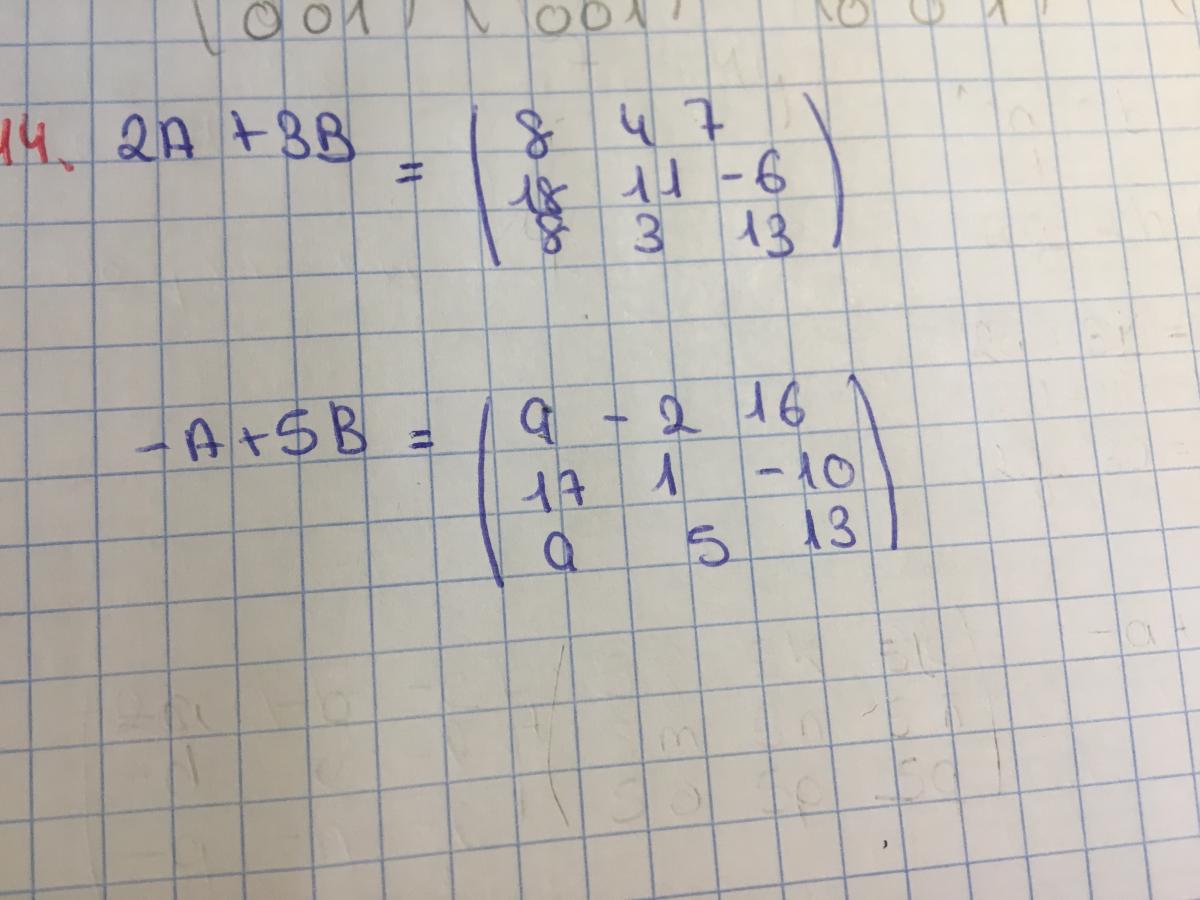 (001) (001) (001)
14. 2A + 3B = ( 8 4 7
18 11 -6
8 3 13 )
-A + 5B = ( 9 - 2 16
17 1 -10
9 5 13 )